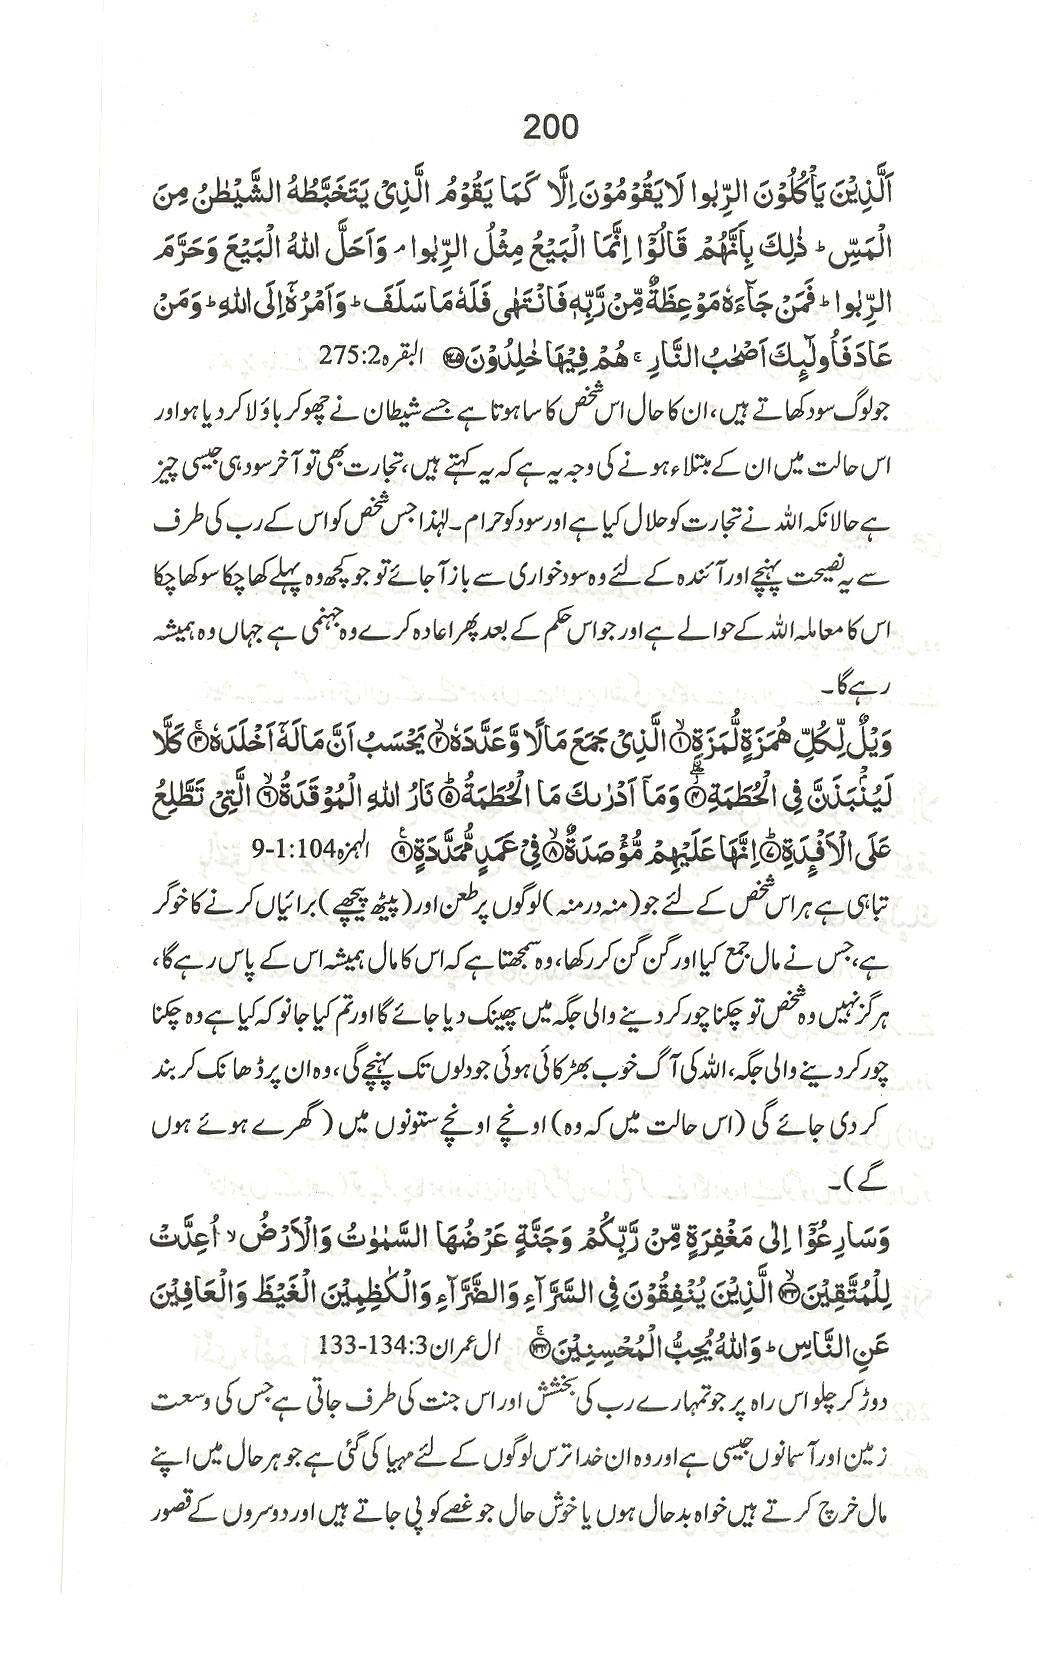 200
اَلَّذِيْنَ يَاْكُلُوْنَ الرِّبٰوا لَا يَقُوْمُوْنَ اِلَّا كَمَا يَقُوْمُ الَّذِيْ يَتَخَبَّطُهُ الشَّيْطٰنُ مِنَ
الْمَسِّ ؕ ذٰلِكَ بِاَنَّهُمْ قَالُوْٓا اِنَّمَا الْبَيْعُ مِثْلُ الرِّبٰوا ۘ وَاَحَلَّ اللّٰهُ الْبَيْعَ وَحَرَّمَ
الرِّبٰوا ؕ فَمَنْ جَآءَهٗ مَوْعِظَةٌ مِّنْ رَّبِّهٖ فَانْتَهٰى فَلَهٗ مَا سَلَفَ ؕ وَاَمْرُهٗٓ اِلَى اللّٰهِ ؕ وَمَنْ
عَادَ فَاُولٰٓئِكَ اَصْحٰبُ النَّارِ ۚ هُمْ فِيْهَا خٰلِدُوْنَ ﴿۲۷۵﴾ البقرہ 275:2
جو لوگ سود کھاتے ہیں، ان کا حال اس شخص کا سا ہوتا ہے جسے شیطان نے چھو کر باؤلا کر دیا ہو اور
اس حالت میں ان کے مبتلاء ہونے کی وجہ یہ ہے کہ یہ کہتے ہیں، تجارت بھی تو آخر سود ہی جیسی چیز
ہے حالانکہ اللہ نے تجارت کو حلال کیا ہے اور سود کو حرام۔ لہٰذا جس شخص کو اس کے رب کی طرف
سے یہ نصیحت پہنچے اور آئندہ کے لئے وہ سود خواری سے باز آ جائے تو جو کچھ وہ پہلے کھا چکا سو کھا چکا
اس کا معاملہ اللہ کے حوالے ہے اور جو اس حکم کے بعد پھر اعادہ کرے وہ جہنمی ہے جہاں وہ ہمیشہ
رہے گا۔
وَيْلٌ لِّكُلِّ هُمَزَةٍ لُّمَزَةِ ﴿۱﴾ الَّذِيْ جَمَعَ مَالًا وَّعَدَّدَهٗ ﴿۲﴾ يَحْسَبُ اَنَّ مَالَهٗٓ اَخْلَدَهٗ ﴿۳﴾ كَلَّا
لَيُنْۢبَذَنَّ فِي الْحُطَمَةِ ﴿۴﴾ وَمَآ اَدْرٰىكَ مَا الْحُطَمَةُ ﴿۵﴾ نَارُ اللّٰهِ الْمُوْقَدَةُ ﴿۶﴾ الَّتِيْ تَطَّلِعُ
عَلَى الْاَفْـِٕدَةِ ﴿۷﴾ اِنَّهَا عَلَيْهِمْ مُّؤْصَدَةٌ ﴿۸﴾ فِيْ عَمَدٍ مُّمَدَّدَةٍ ﴿۹﴾ الہمزہ 104:1-9
تباہی ہے ہر اس شخص کے لئے جو (منہ در منہ) لوگوں پر طعن اور (پیٹھ پیچھے) برائیاں کرنے کا خوگر
ہے، جس نے مال جمع کیا اور گن گن کر رکھا، وہ سمجھتا ہے کہ اس کا مال ہمیشہ اس کے پاس رہے گا،
ہرگز نہیں وہ شخص تو چکنا چور کر دینے والی جگہ میں پھینک دیا جائے گا اور تم کیا جانو کہ کیا ہے وہ چکنا
چور کر دینے والی جگہ، اللہ کی آگ خوب بھڑکائی ہوئی جو دلوں تک پہنچے گی، وہ ان پر ڈھانک کر بند
کر دی جائے گی (اس حالت میں کہ وہ) اونچے اونچے ستونوں میں (گھرے ہوئے ہوں
گے)۔
وَسَارِعُوْٓا اِلٰى مَغْفِرَةٍ مِّنْ رَّبِّكُمْ وَجَنَّةٍ عَرْضُهَا السَّمٰوٰتُ وَالْاَرْضُ ۙ اُعِدَّتْ
لِلْمُتَّقِيْنَ ﴿۱۳۳﴾ الَّذِيْنَ يُنْفِقُوْنَ فِي السَّرَّآءِ وَالضَّرَّآءِ وَالْكٰظِمِيْنَ الْغَيْظَ وَالْعَافِيْنَ
عَنِ النَّاسِ ؕ وَاللّٰهُ يُحِبُّ الْمُحْسِنِيْنَ ﴿۱۳۴﴾ ال عمران 3:133-134
دوڑ کر چلو اس راہ پر جو تمہارے رب کی بخشش اور اس جنت کی طرف جاتی ہے جس کی وسعت
زمین اور آسمانوں جیسی ہے اور وہ ان خدا ترس لوگوں کے لئے مہیا کی گئی ہے جو ہر حال میں اپنے
مال خرچ کرتے ہیں خواہ بدحال ہوں یا خوش حال جو غصے کو پی جاتے ہیں اور دوسروں کے قصور